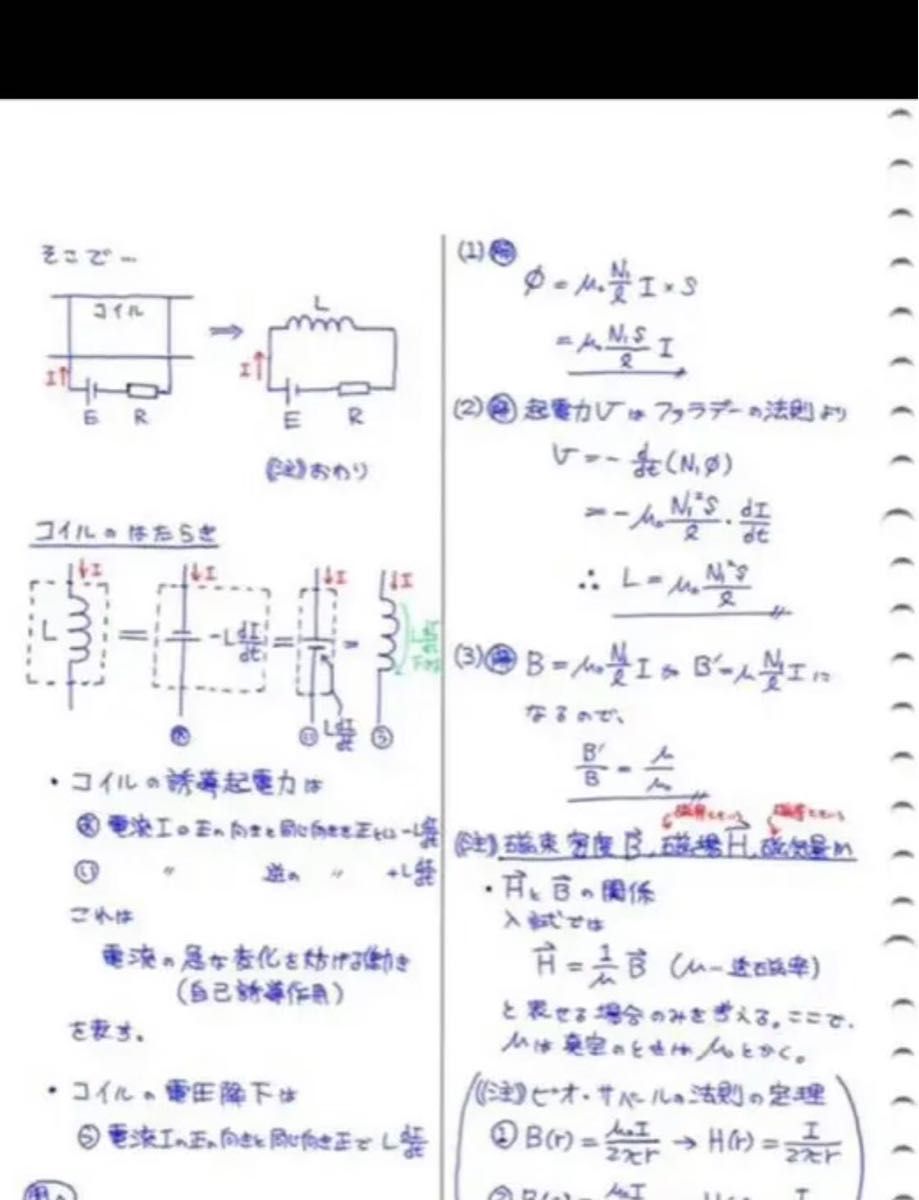 そこで…
コイル
I
E R
⇒
L
I
E R
(注)おわり
コイルのはたらき
I I I I
L = -L dI/dt = =
あ い L dI/dt う
・コイルの誘導起電力は
あ 電流Iの正の向きと同じ向きを正とし -L dI/dt
い 〃 逆の 〃 +L dI/dt
これは
電流の急な変化を妨げる働き
(自己誘導作用)
を表す。
・コイルの電圧降下は
う 電流Iの正の向きと同じ向き正で L dI/dt
(1) 解
φ = μ₀ N₁/ℓ I × S
= μ₀ N₁S/ℓ I
(2) 解 起電力Vはファラデーの法則より
V = - d/dt (N₁φ)
= -μ₀ N₁²S/ℓ · dI/dt
∴ L = μ₀ N₁²S/ℓ
(3) 解 B = μ₀ N₁/ℓ I が B' = μ N₁/ℓ I に
なるので、
B'/B = μ/μ₀
(注) 磁束密度 B⃗, 磁場 H⃗, 磁気量 m
・H⃗とB⃗の関係
入試では
H⃗ = 1/μ B⃗ (μ-透磁率)
と表せる場合のみを考える。ここで、
μは真空のときはμ₀とかく。
(注) ビオ・サバールの法則の定理
① B(r) = μ₀I/2πr → H(r) = I/2πr